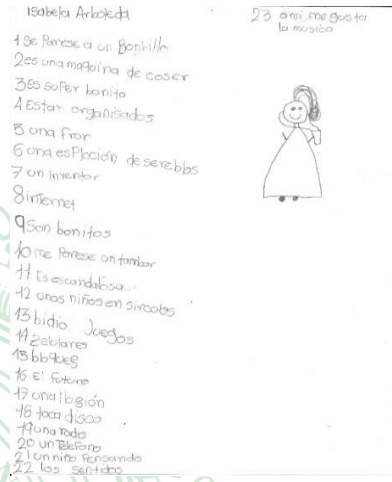 Isabela Arboleda
1 Se Parese a un Bonbillo
2 es una maquina de coser
3 Es super bonito
4 Estan organisados
5 una fror
6 una esploción de serebbs
7 un inventor
8 internet
9 Son bonitos
10 me Parese un tambor
11 Es escandalosa
12 unos niños en sircolos
13 bidio Juegos
14 Zeblares
15 bbques
16 El futuro
17 una lbsión
18 toca disco
19 una rodo
20 un Telefono
21 un niño Pensando
22 los sentidos
23 ami, me gusta
la musica